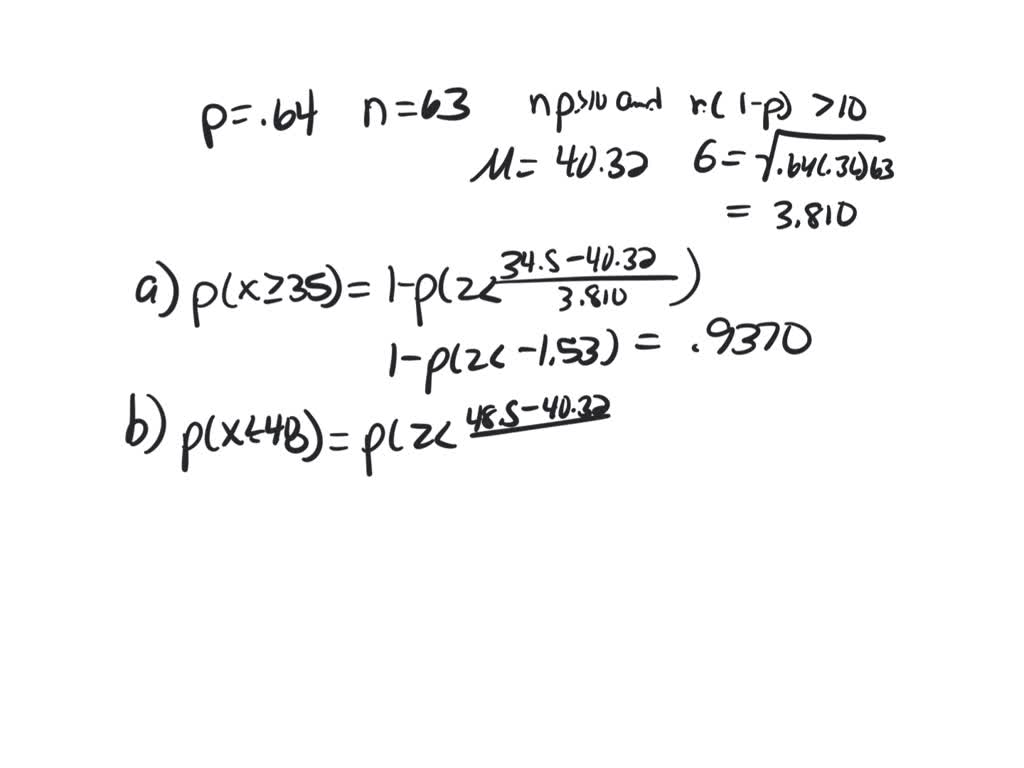 p=.64 n=63 np>10 and n(1-p) >10
M= 40.32 6=√.64(.36)63
= 3.810
a) p(x≥35)= 1-p(z< 34.5-40.32 / 3.810 )
1-p(z< -1.53) = .9370
b) p(x≤48)= p(z< 48.5-40.32